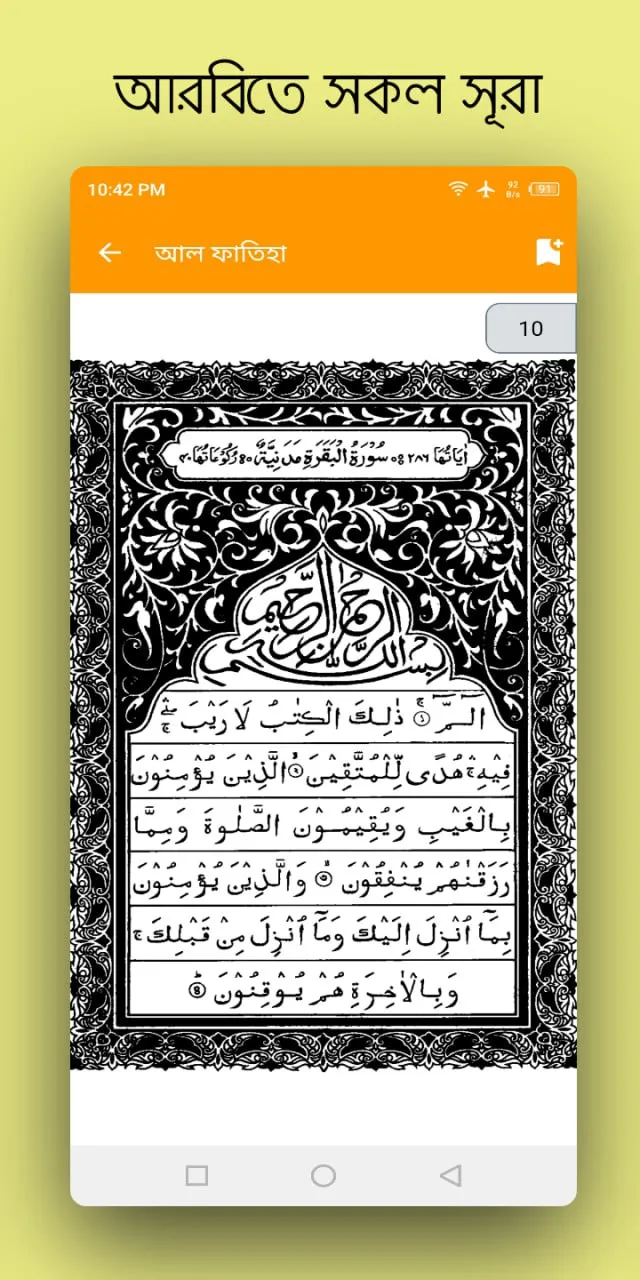 আরবিতে সকল সূরা
10:42 PM
92
B/s
91
আল ফাতিহা
10
اٰيَاتُهَا ٢٨٦ سُوْرَةُ الْبَقَرَةِ مَدَنِيَّةٌ رُكُوْعَاتُهَا ٤٠
بِسْمِ اللّٰهِ الرَّحْمٰنِ الرَّحِيْمِ
الٓـمّٓ ۚ ١ ذٰلِكَ الْكِتٰبُ لَا رَيْبَ ۛۚ
فِيْهِ ۛ هُدًى لِّلْمُتَّقِيْنَ ۙ ٢ الَّذِيْنَ يُؤْمِنُوْنَ
بِالْغَيْبِ وَيُقِيْمُوْنَ الصَّلٰوةَ وَمِمَّا
رَزَقْنٰهُمْ يُنْفِقُوْنَ ۙ ٣ وَالَّذِيْنَ يُؤْمِنُوْنَ
بِمَاۤ اُنْزِلَ اِلَيْكَ وَمَاۤ اُنْزِلَ مِنْ قَبْلِكَ ۚ
وَبِالْاٰخِرَةِ هُمْ يُوْقِنُوْنَ ؕ ٤